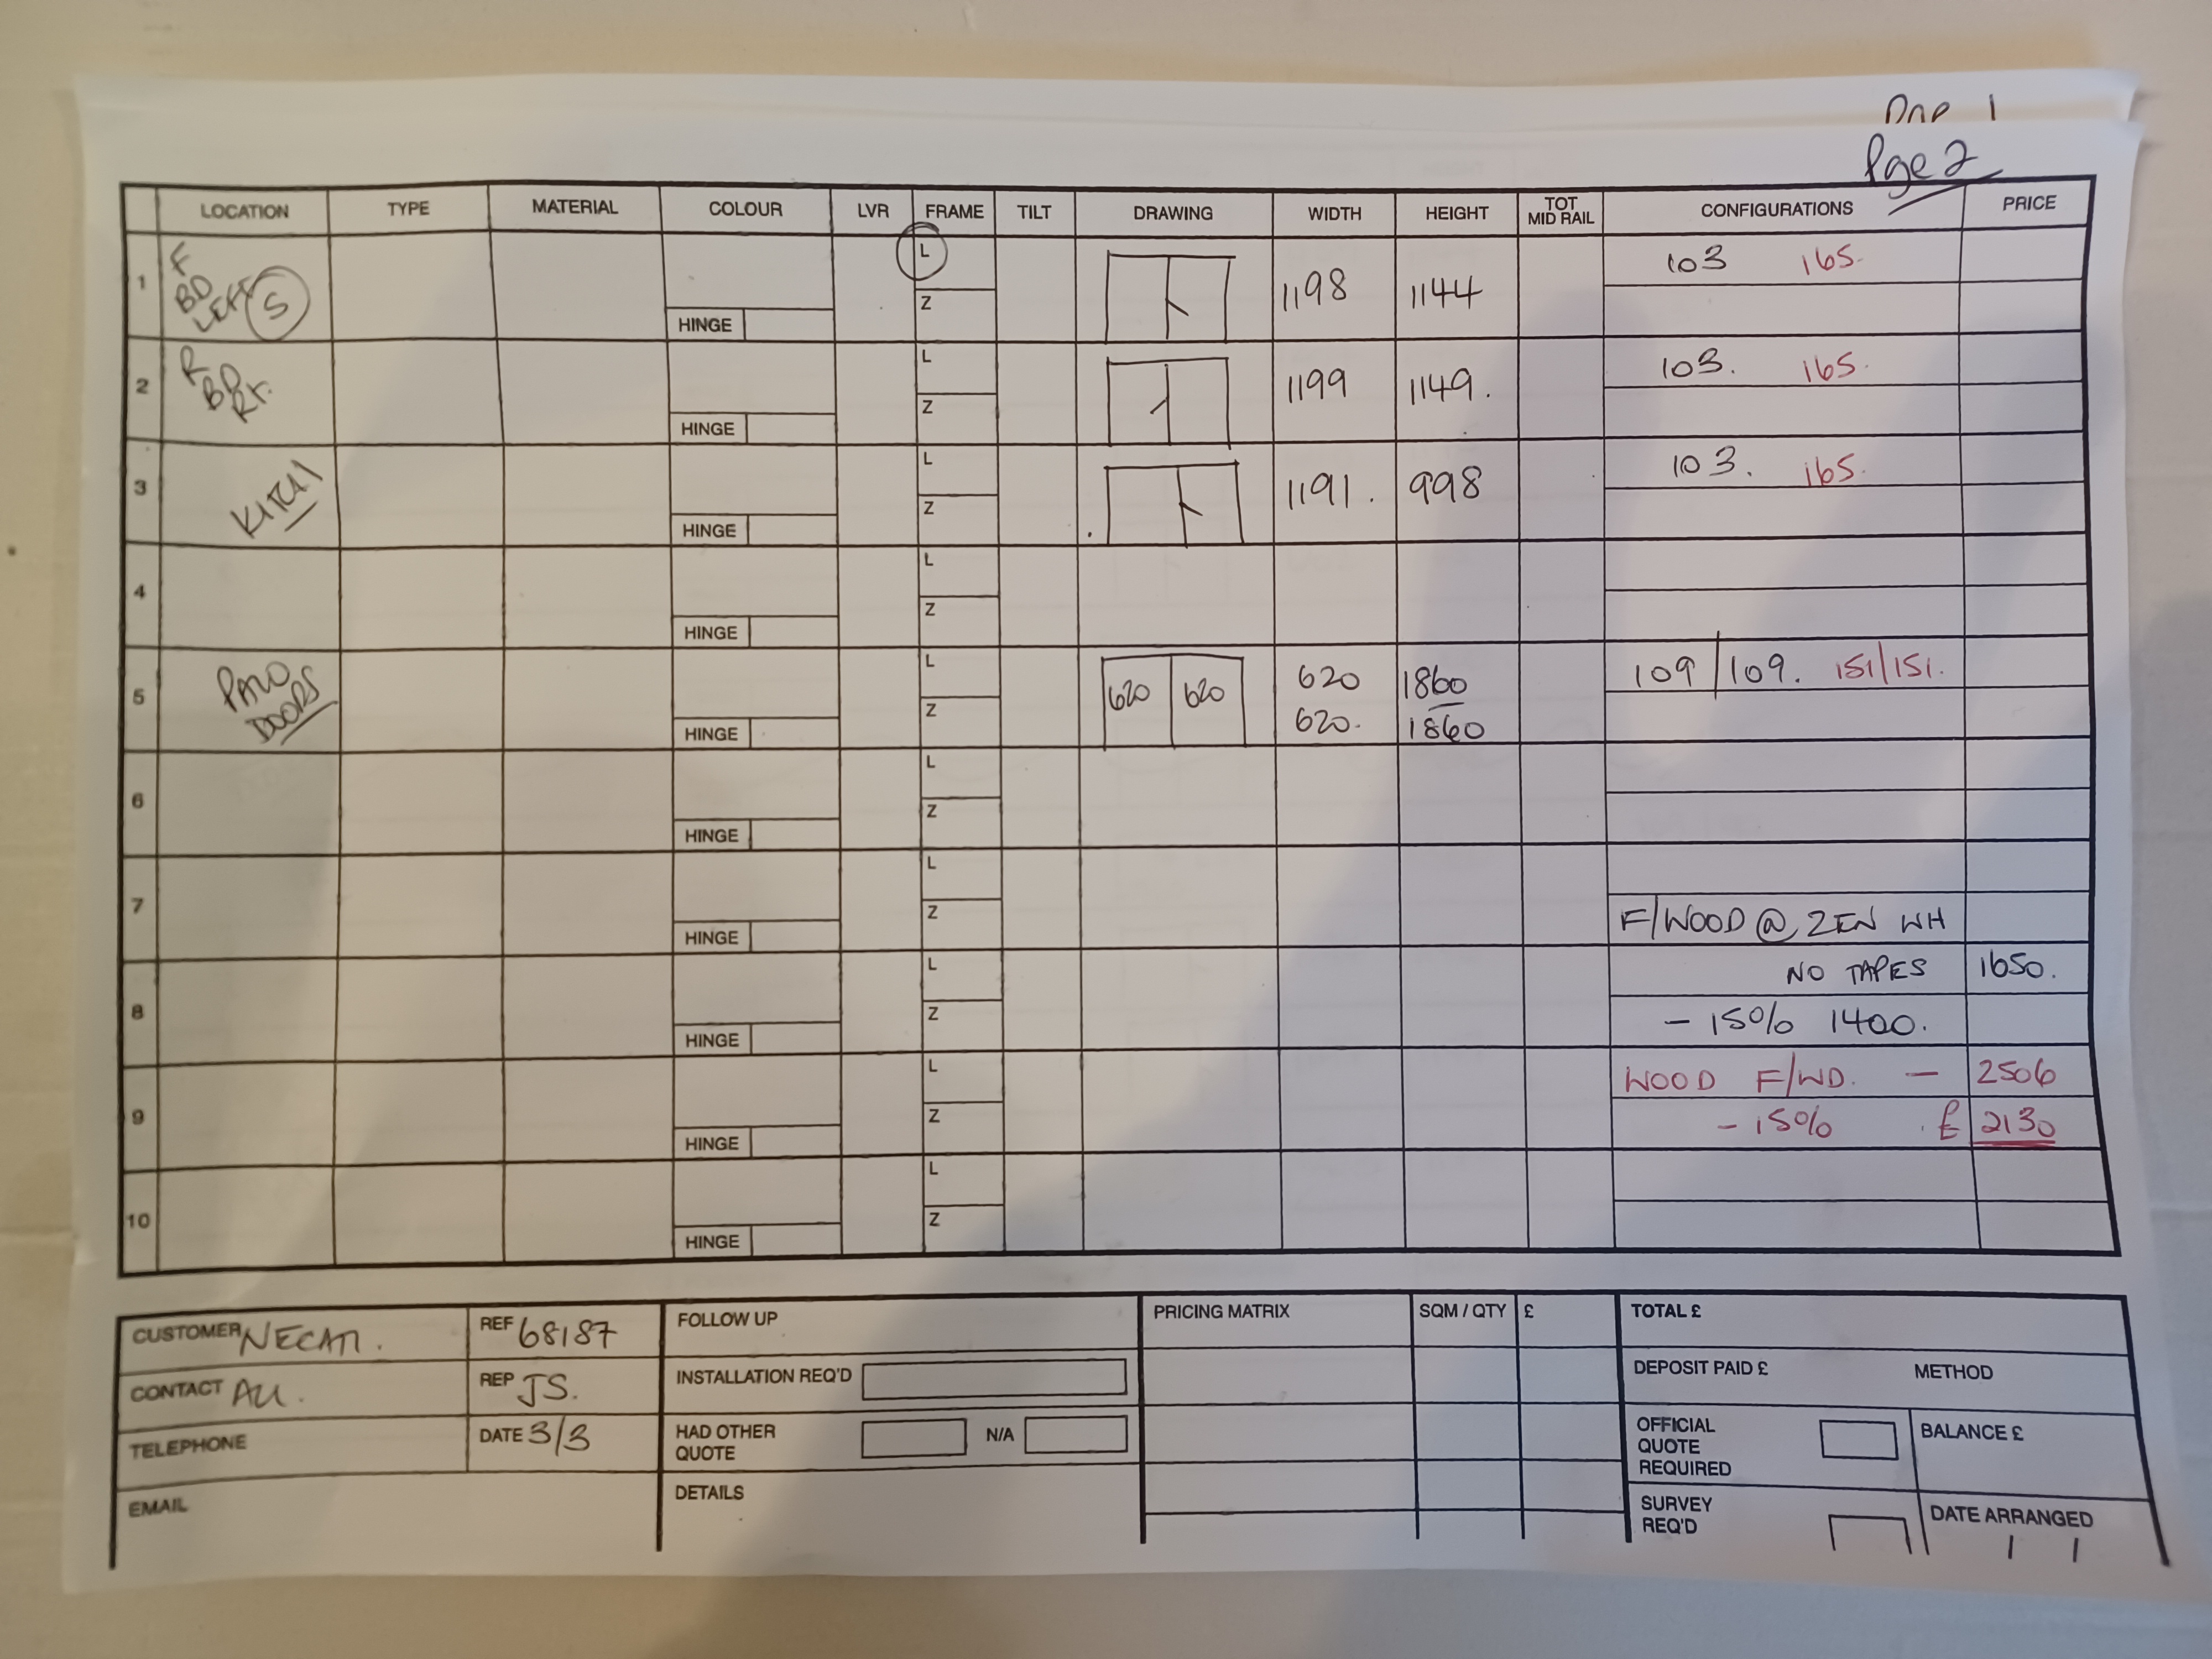 Page 2
LOCATION TYPE MATERIAL COLOUR LVR FRAME TILT DRAWING WIDTH HEIGHT TOT MID RAIL CONFIGURATIONS PRICE
1 F BD LEFT S HINGE L Z 1198 1144 103 165.
2 R BD Rt. HINGE L Z 1199 1149. 103. 165.
3 HINGE L Z 1191. 998 103. 165.
4 HINGE L Z
5 DOORS HINGE L Z 620 620 620 1860 109/109. 151/151.
620. 1860
6 HINGE L Z
7 HINGE L Z F/WOOD @ ZEN WH
8 HINGE L Z NO TAPES 1650.
- 15% 1400.
9 HINGE L Z WOOD F/WD. - 2506
- 15% £ 2130
10 HINGE L Z
CUSTOMER NECATI. REF 68187 FOLLOW UP PRICING MATRIX SQM / QTY £ TOTAL £
CONTACT REP JS. INSTALLATION REQ'D DEPOSIT PAID £ METHOD
TELEPHONE DATE 3/3 HAD OTHER QUOTE N/A OFFICIAL QUOTE REQUIRED BALANCE £
EMAIL DETAILS SURVEY REQ'D DATE ARRANGED